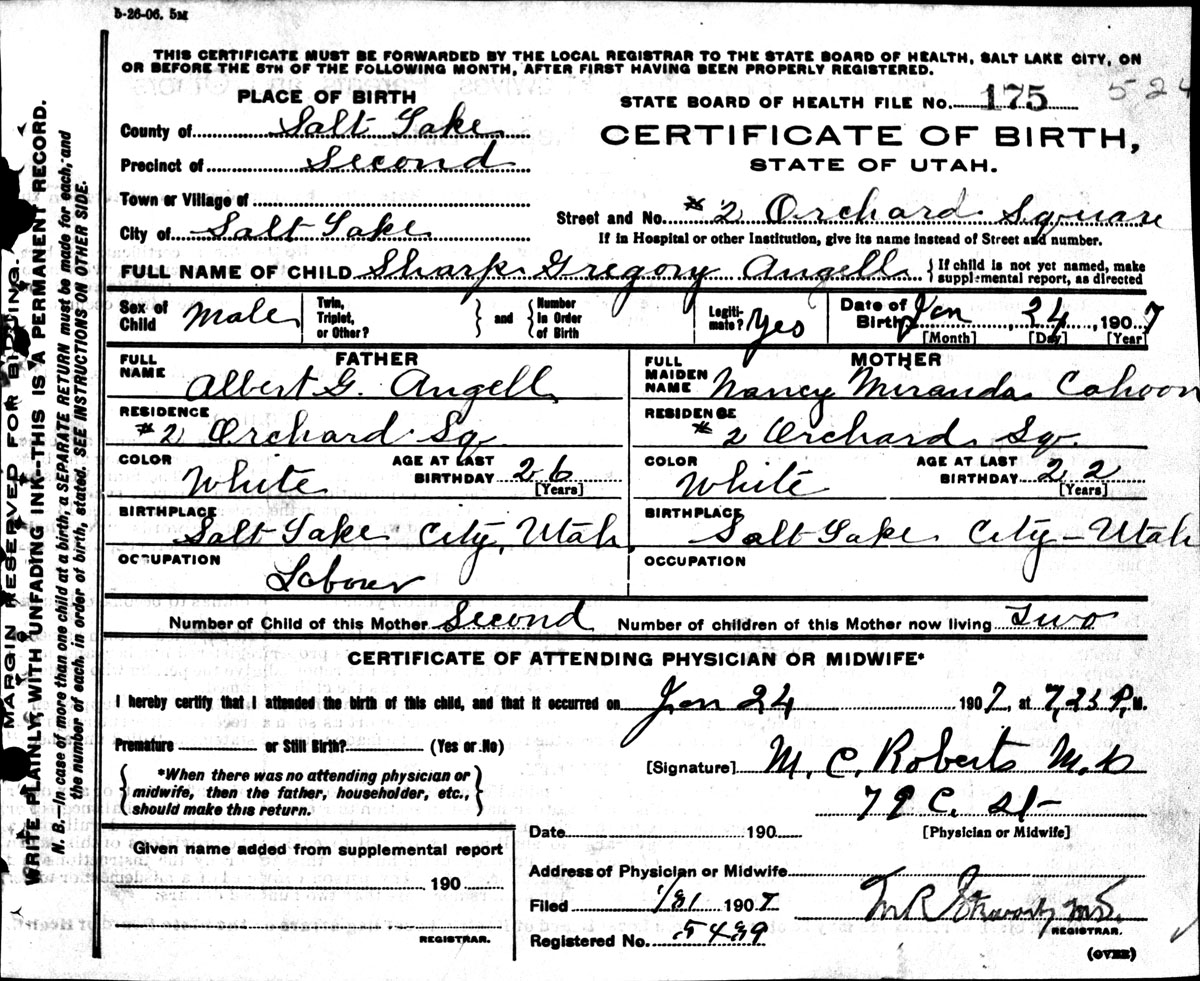 5-26-06. 5M
THIS CERTIFICATE MUST BE FORWARDED BY THE LOCAL REGISTRAR TO THE STATE BOARD OF HEALTH, SALT LAKE CITY, ON
OR BEFORE THE 5TH OF THE FOLLOWING MONTH, AFTER FIRST HAVING BEEN PROPERLY REGISTERED.
PLACE OF BIRTH
STATE BOARD OF HEALTH FILE No. 175 524
County of Salt Lake
CERTIFICATE OF BIRTH,
Precinct of Second
STATE OF UTAH.
Town or Village of
Street and No. #2 Orchard Square
City of Salt Lake
If in Hospital or other Institution, give its name instead of Street and number.
FULL NAME OF CHILD Sharp Gregory Angell { If child is not yet named, make
supplemental report, as directed
Sex of Child Male Twin, Triplet, or Other? } and { Number in Order of Birth Legiti-mate? Yes Date of Birth Jan 24, 1907
[Month] [Day] [Year]
FATHER MOTHER
FULL NAME Albert G. Angell FULL MAIDEN NAME Nancy Miranda Cahoon
RESIDENCE #2 Orchard Sq. RESIDENCE #2 Orchard Sq.
COLOR White AGE AT LAST BIRTHDAY 26 [Years] COLOR White AGE AT LAST BIRTHDAY 22 [Years]
BIRTHPLACE Salt Lake City, Utah BIRTHPLACE Salt Lake City - Utah
OCCUPATION Labour OCCUPATION
Number of Child of this Mother Second Number of children of this Mother now living Two
CERTIFICATE OF ATTENDING PHYSICIAN OR MIDWIFE*
I hereby certify that I attended the birth of this child, and that it occurred on Jan 24 1907, at 7,25 P. M.
Premature or Still Birth? (Yes or No)
[Signature] M. C. Roberts M.D
{ *When there was no attending physician or
midwife, then the father, householder, etc.,
should make this return. }
79 C. St-
[Physician or Midwife]
Date 190
Given name added from supplemental report
190
REGISTRAR.
Address of Physician or Midwife
Filed 1/31 1907
REGISTRAR.
Registered No. 5439
(OVER)
MARGIN RESERVED FOR BINDING
WRITE PLAINLY, WITH UNFADING INK--THIS IS A PERMANENT RECORD.
N. B.—In case of more than one child at a birth, a SEPARATE RETURN must be made for each, and
the number of each, in order of birth, stated. SEE INSTRUCTIONS ON OTHER SIDE.